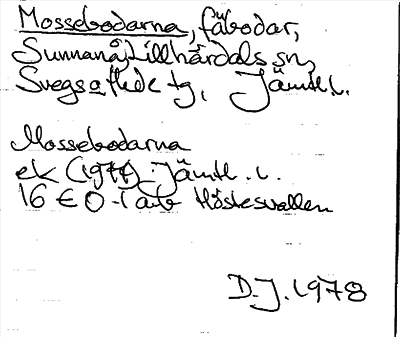 Mossebodarna, fäbodar,
Sunnanå, Lillhärdals sn,
Svegs tg, Jämtl. l.
Mossebodarna
ek (1971) Jämtl. l.
16 E 0-1 a+b Höstesvallen
D.J. 1978